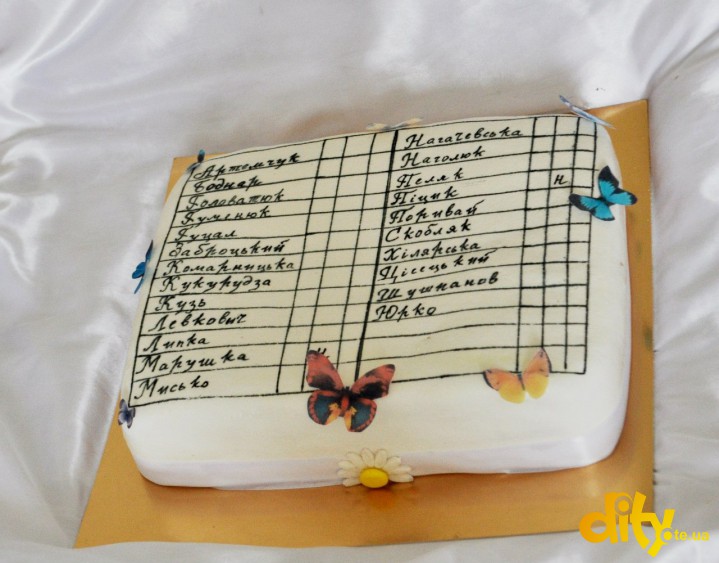 Артемчук
Боднар
Головатюк
Гуменюк
Гуцал
Заброцький
Комарницька
Кукурудза
Кузь
Левкович
Липка
Марушка
Мисько
Нагачевська
Наголюк
Пеляк
н
Піцик
Поривай
Скобляк
Хілярська
Цісецький
Шушпанов
Юрко
dity.te.ua